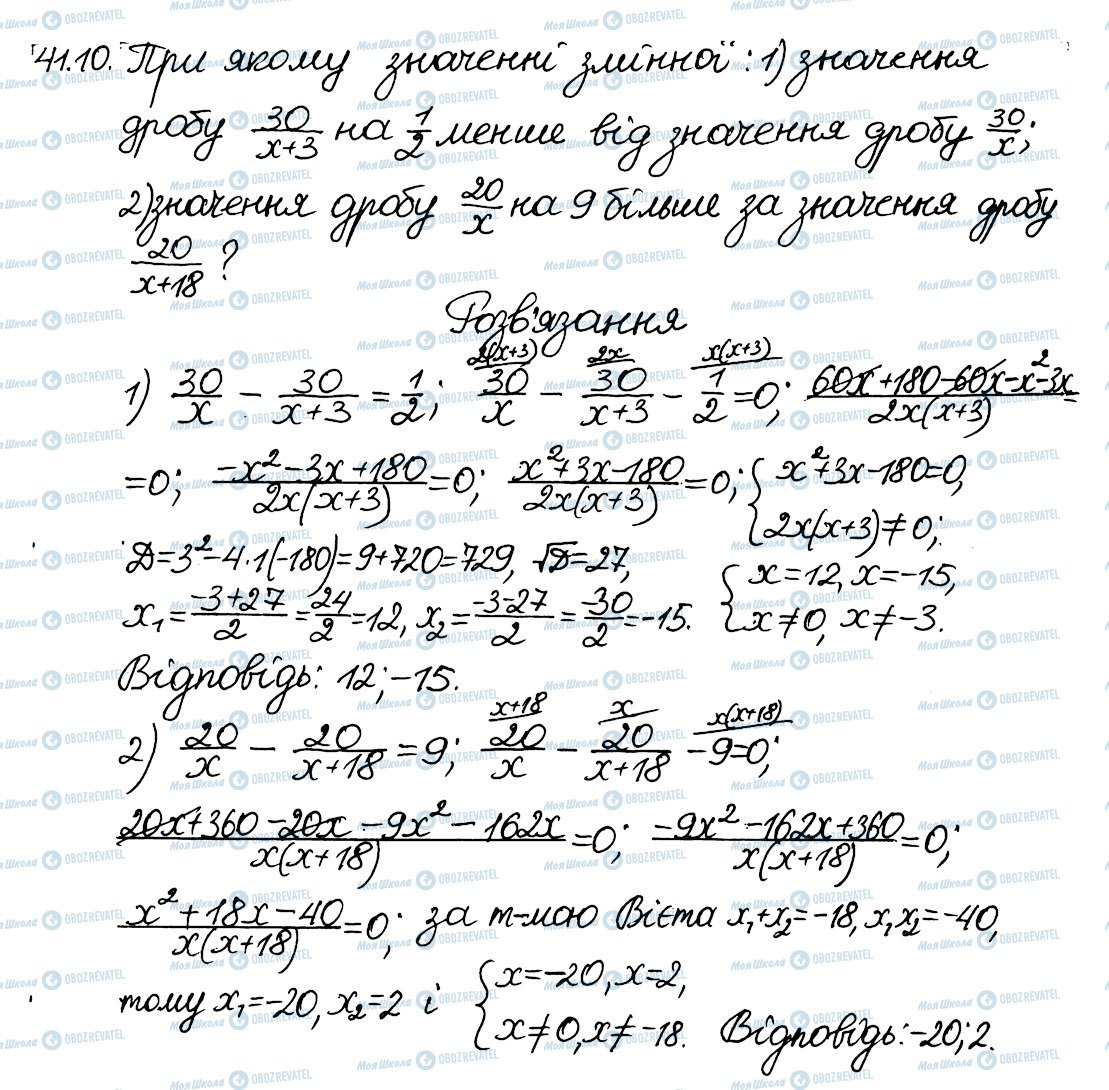 41.10. При якому значенні змінної: 1) значення
дробу 30/(x+3) на 1/2 менше від значення дробу 30/x;
2) значення дробу 20/x на 9 більше за значення дробу
20/(x+18) ?
Розв'язання
1) 30/x - 30/(x+3) = 1/2; 2(x+3)/ 30/x - 2x/ 30/(x+3) - x(x+3)/ 1/2 = 0; (60x+180-60x-x²-3x)/(2x(x+3)) =
=0; (-x²-3x+180)/(2x(x+3)) = 0; (x²+3x-180)/(2x(x+3)) = 0; { x²+3x-180=0,
2x(x+3)≠0;
D=3²-4·1(-180)=9+720=729, √D=27,
{ x=12, x=-15,
x₁ = (-3+27)/2 = 24/2 = 12, x₂ = (-3-27)/2 = -30/2 = -15.
x≠0, x≠-3.
Відповідь: 12; -15.
2) 20/x - 20/(x+18) = 9; x+18/ 20/x - x/ 20/(x+18) - x(x+18)/ 9 = 0;
(20x+360-20x-9x²-162x)/(x(x+18)) = 0; (-9x²-162x+360)/(x(x+18)) = 0;
(x²+18x-40)/(x(x+18)) = 0; за т-мою Вієта x₁+x₂=-18, x₁x₂=-40,
тому x₁=-20, x₂=2 і { x=-20, x=2,
x≠0, x≠-18. Відповідь: -20; 2.
МояШкола OBOZREVATEL